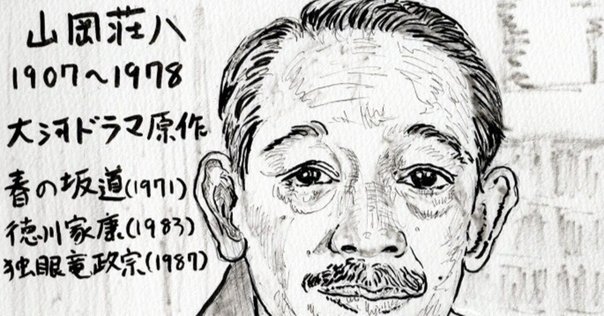 山岡荘八
1907〜1978
大河ドラマ原作
春の坂道(1971)
徳川家康(1983)
独眼竜政宗(1987)